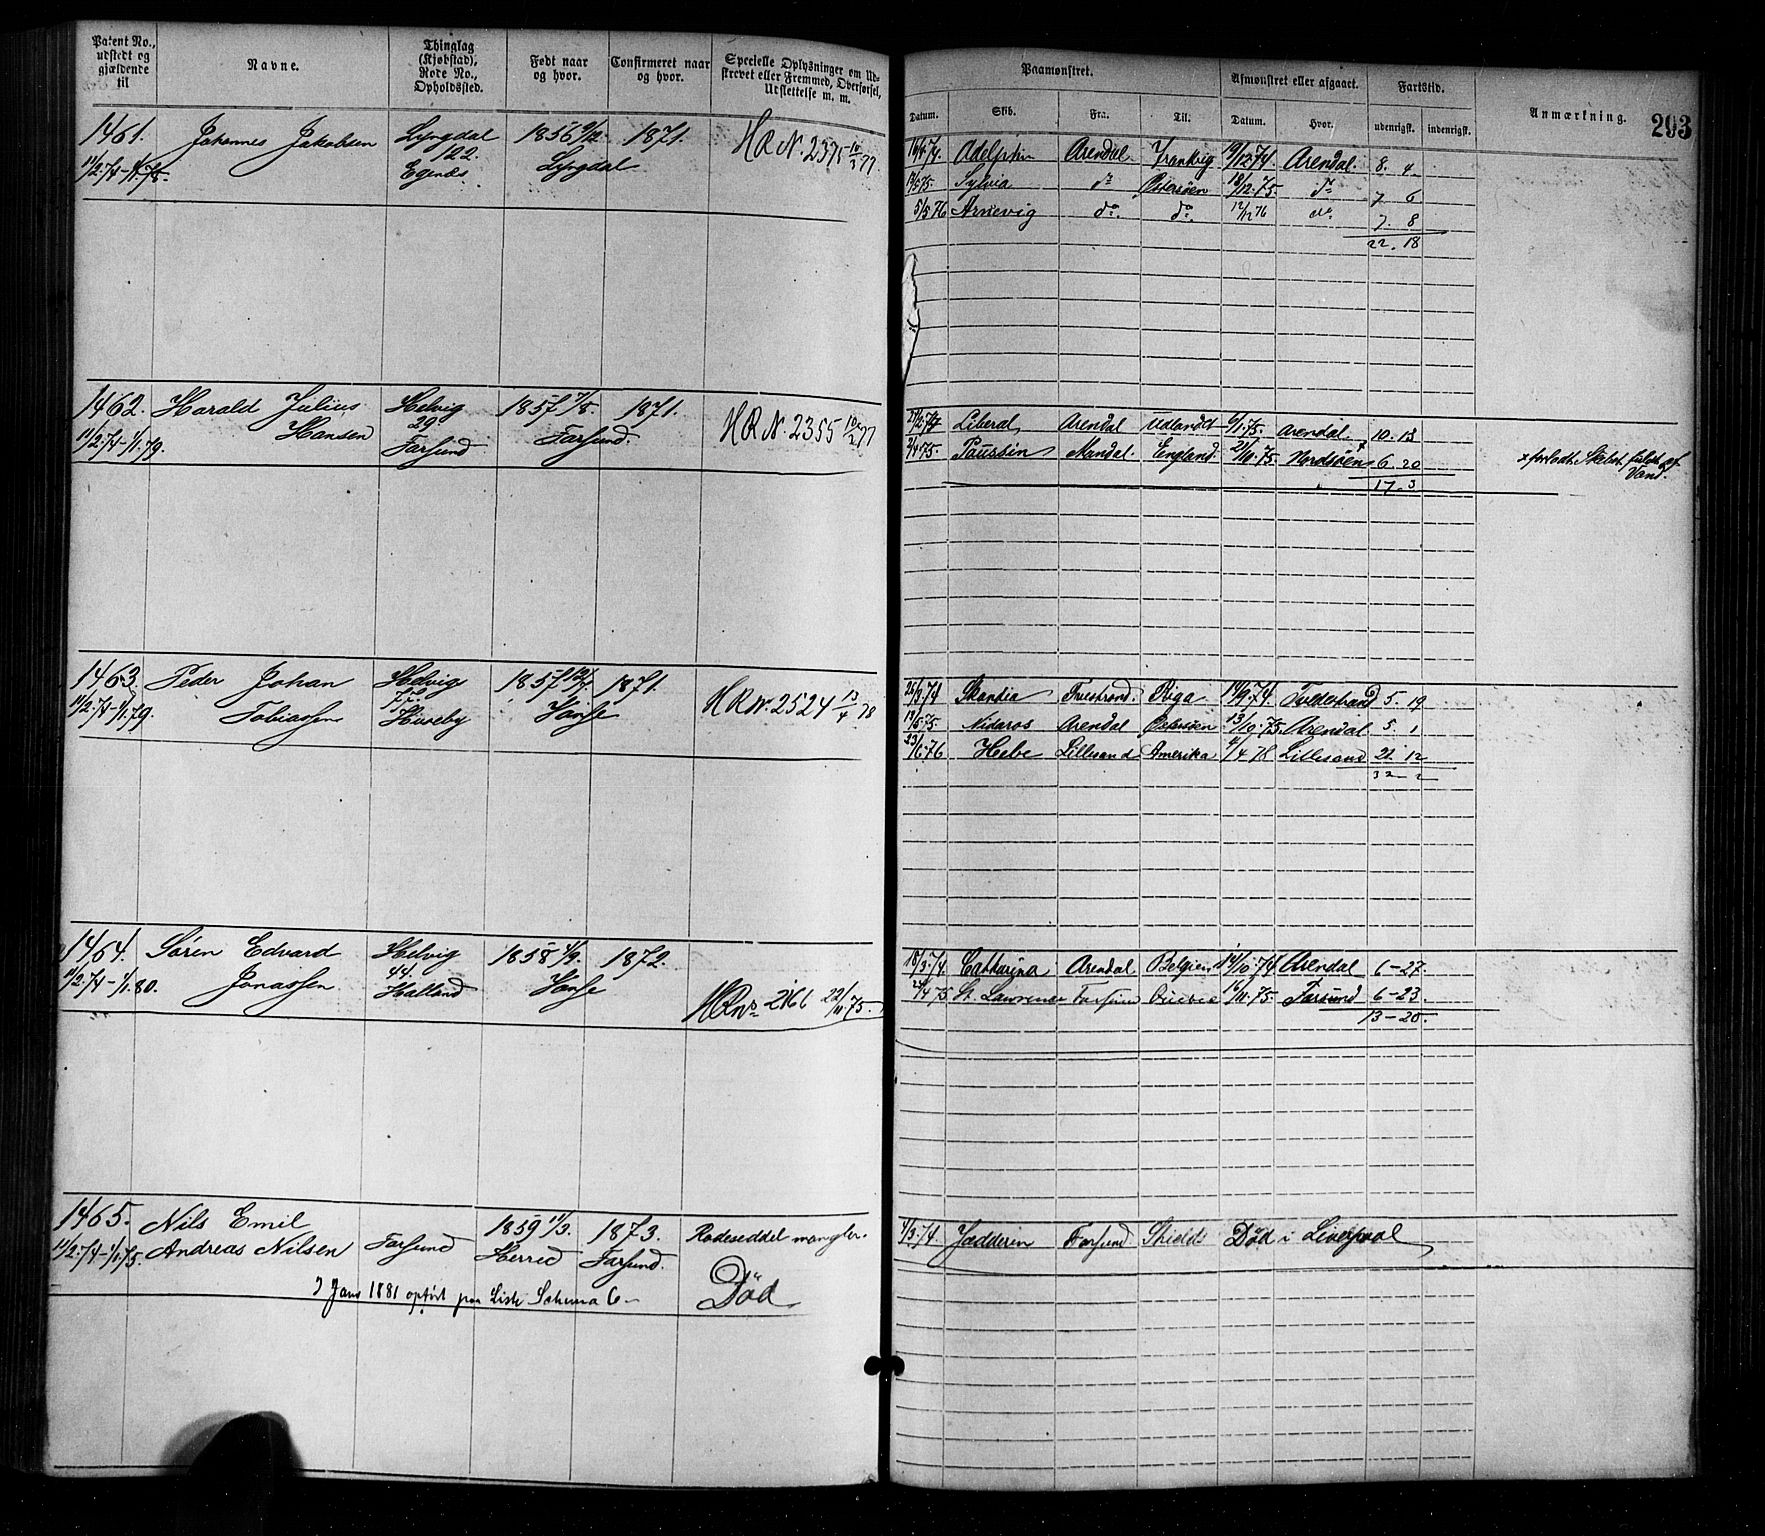 Patent No., udstedt og gjældende til
Navne.
Thinglag (Kjøbstad), Rode No., Opholdssted.
Født naar og hvor.
Confirmeret naar og hvor.
Specielle Oplysninger om Udskrevet eller Fremmed, Overførsel, Udslettelse m. m.
1461.
11/2.74-1/1.78.
Johannes Jakobsen
Lyngdal
122.
Egenæs
1856
Lyngdal
1871.
HR N. 2375 77
1462.
11/2.74-1/1.79.
Harald Julius
Hansen
Helvig
29
Farsund
1857 7/8.
Farsund.
1871.
HR N. 2355 77
1463.
11/2.74-1/1.79.
Peder Johan
Tobiassen
Helvig
Huseby
1857
Vanse
1871.
HR N. 2524 13/4 78
1464.
11/2.74-1/1.80.
Søren Edvard
Jonassen
Helvig
44.
Halland
1858 4/9.
Vanse
1872.
HR No 2166 22/11 75.
1465.
11/2.74-1/1.75.
Nils Emil
Andreas Nilsen
Farsund
1859 11/3.
Herred
1873.
Farsund.
Rodeseddel mangler.
Død
Jan 1881 opført paa Liste Schema 6
Paamønstret.
Afmønstret eller afgaaet.
Fartstid.
Anmærkning.
293
Datum. Skib. Fra. Til. Datum. Hvor. udenrigst. indenrigst.
Arendal 19/12.74. Arendal. 8. 4
Sylvia do Østersøen 18/12.75. do 7 6
5/5 76 Arnevig do. do. 12/12 76 do 7. 8
22. 18
Liberal Arendal Udlandet 6/1.75. Arendal. 10. 13
Mandal. England 21/10.75. Nordsøen x 6 20
x forlodt Skibet fuldt af Vand.
17. 3
25/3.74 Skandia Riga 14/9.74. Tvedestrand 5. 19
19/5.75 Nidaros Arendal Østersøen 13/10.75. Arendal 5. 1
23/6.76 Hebe Lillesand Amerika 4/4 78 Lillesand 21. 12
32 2
18/3.74. Catharina Arendal Belgien 14/10.74 Arendal 6-27.
24/4 75 St. Laurence Farsund Quebec 16/11.75. Farsund 6-23.
13-20.
4/3.74. Jædderen Farsund Shields Død i Liverpool